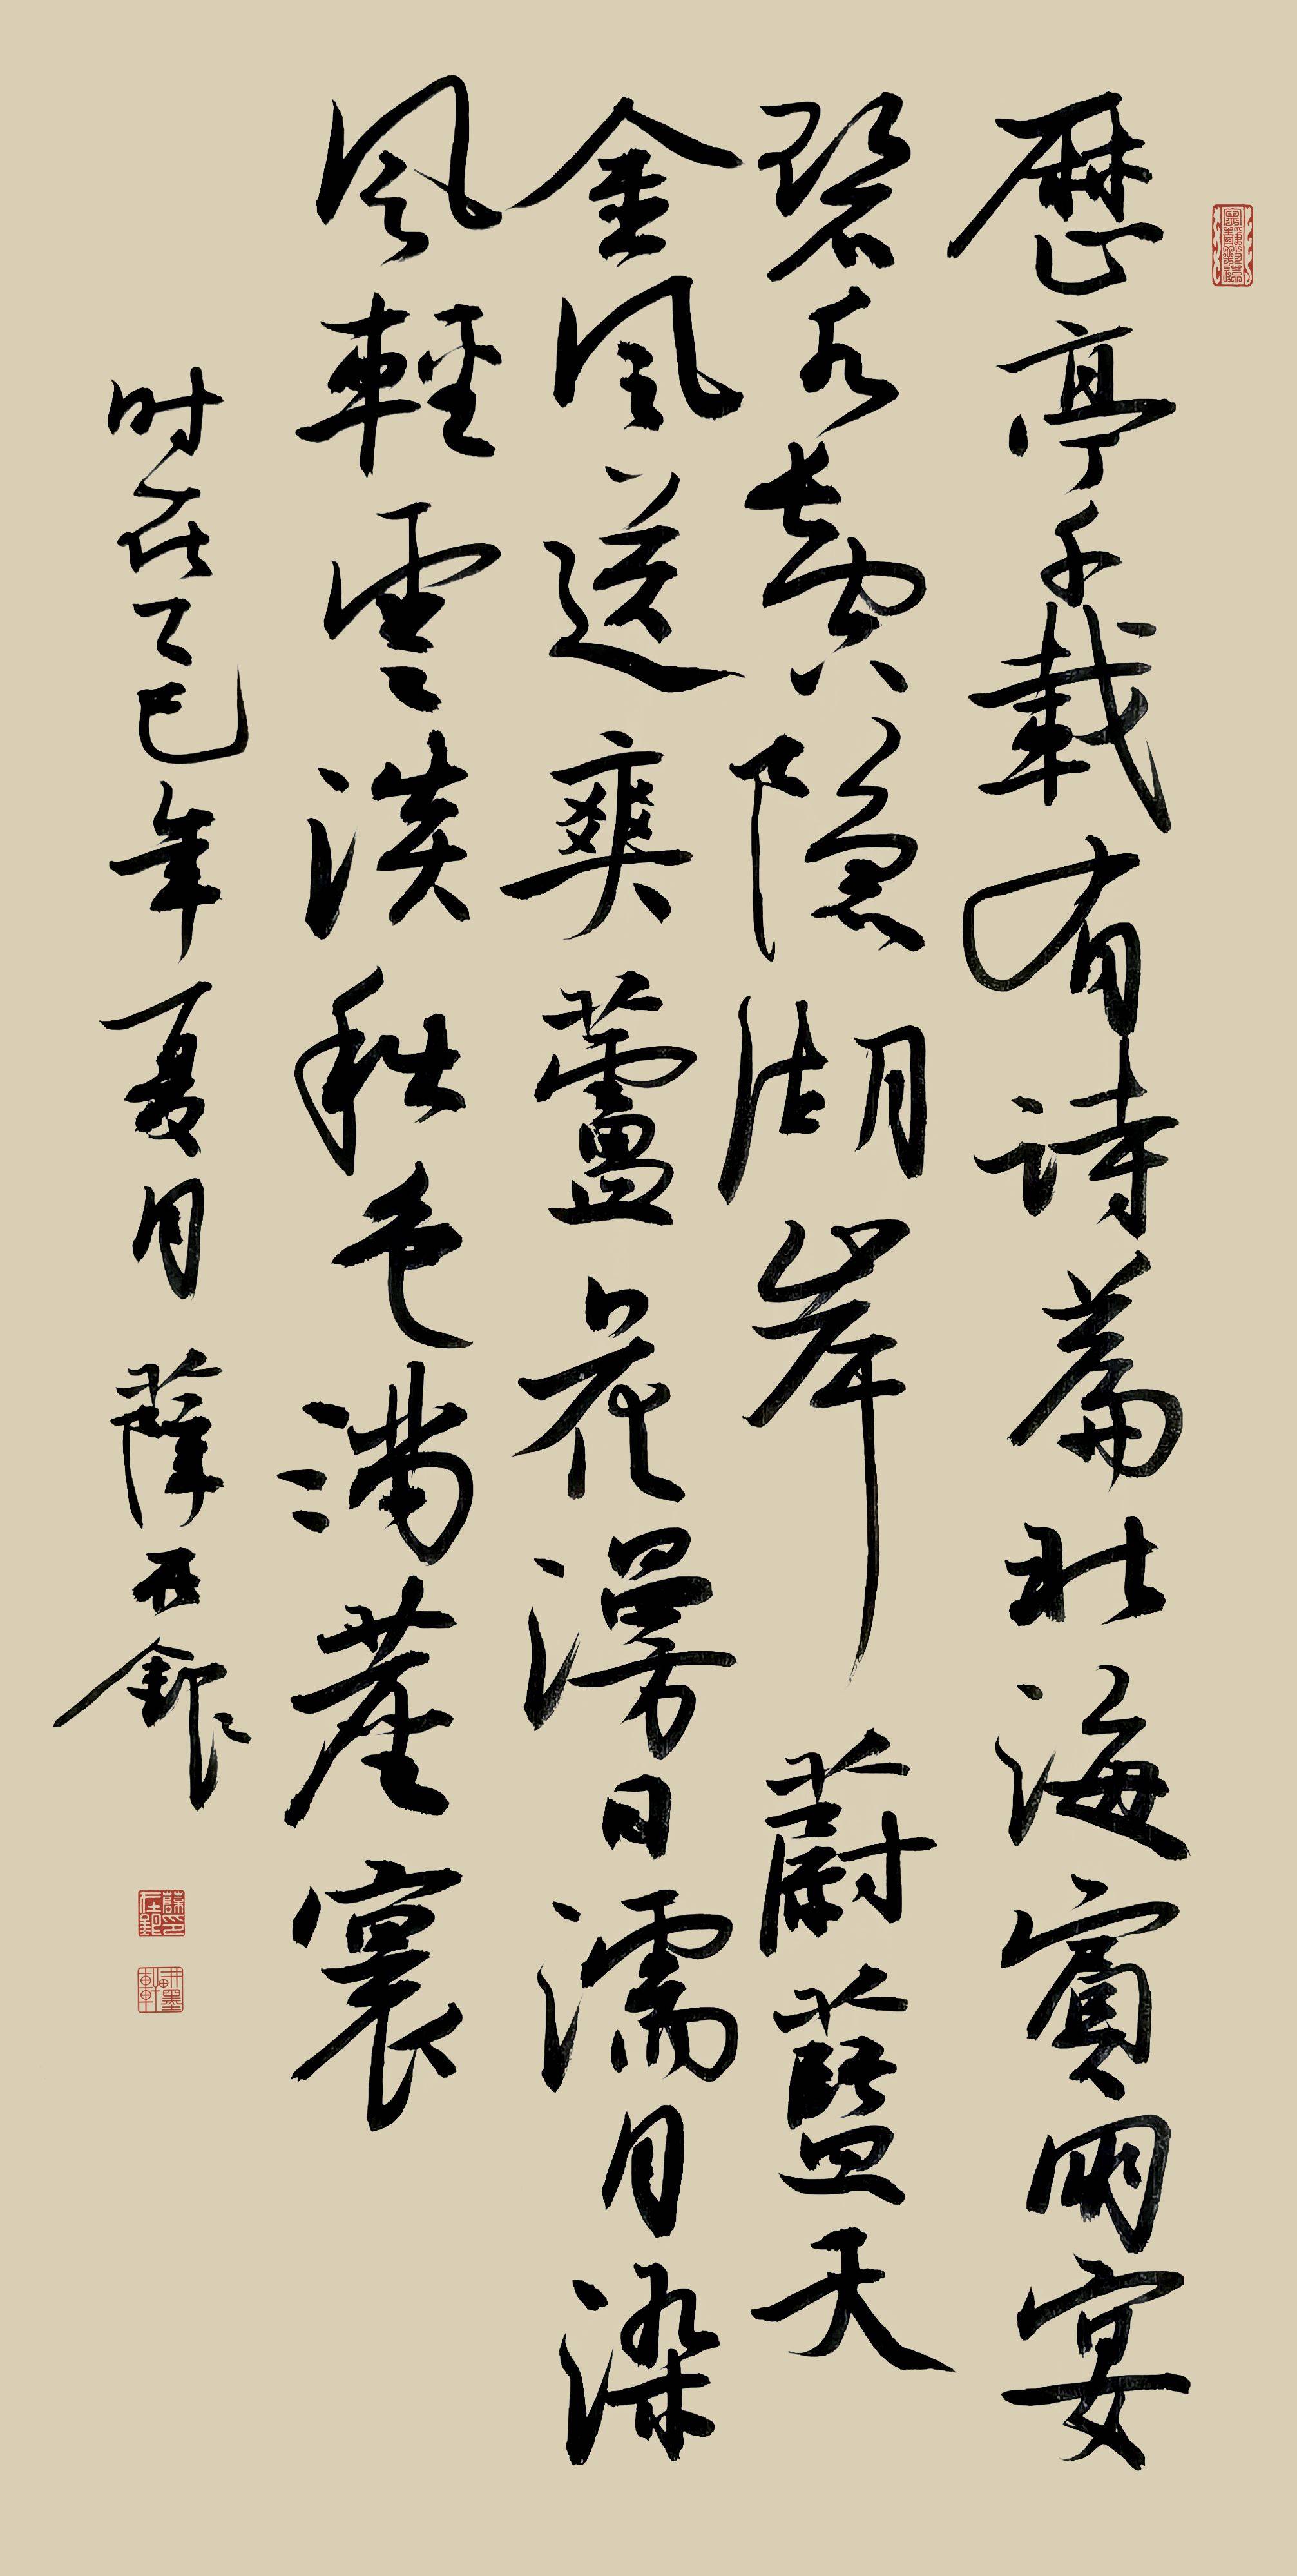 歷亭千載有詩篇北海賓朋宴
碧隱湖岸蔚藍天
金風送爽蘆花漫日濡月染
風輕雲淡秋色滿塵寰
时在乙巳年夏月薛
耕墨軒